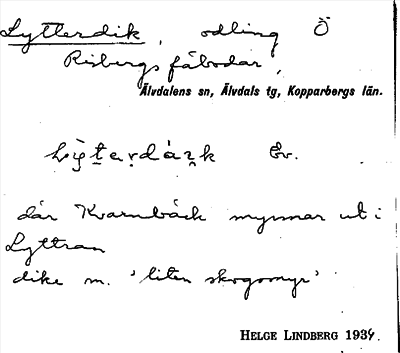 Lytterdik, odling Ö
Risbergs fäbodar,
Älvdalens sn, Älvdals tg, Kopparbergs län.
Ev.
där Kvarnbäck mynnar ut i
Lyttran
dike m. 'liten skogsmyr'
HELGE LINDBERG 1934.